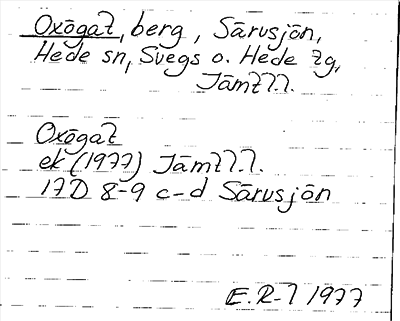 Oxögat, berg, Särvsjön,
Hede sn, Svegs o. Hede tg,
Jämtl.l.
Oxögat
ek (1977) Jämtl.l.
17D 8-9 c-d Särvsjön
E.R-l 1977